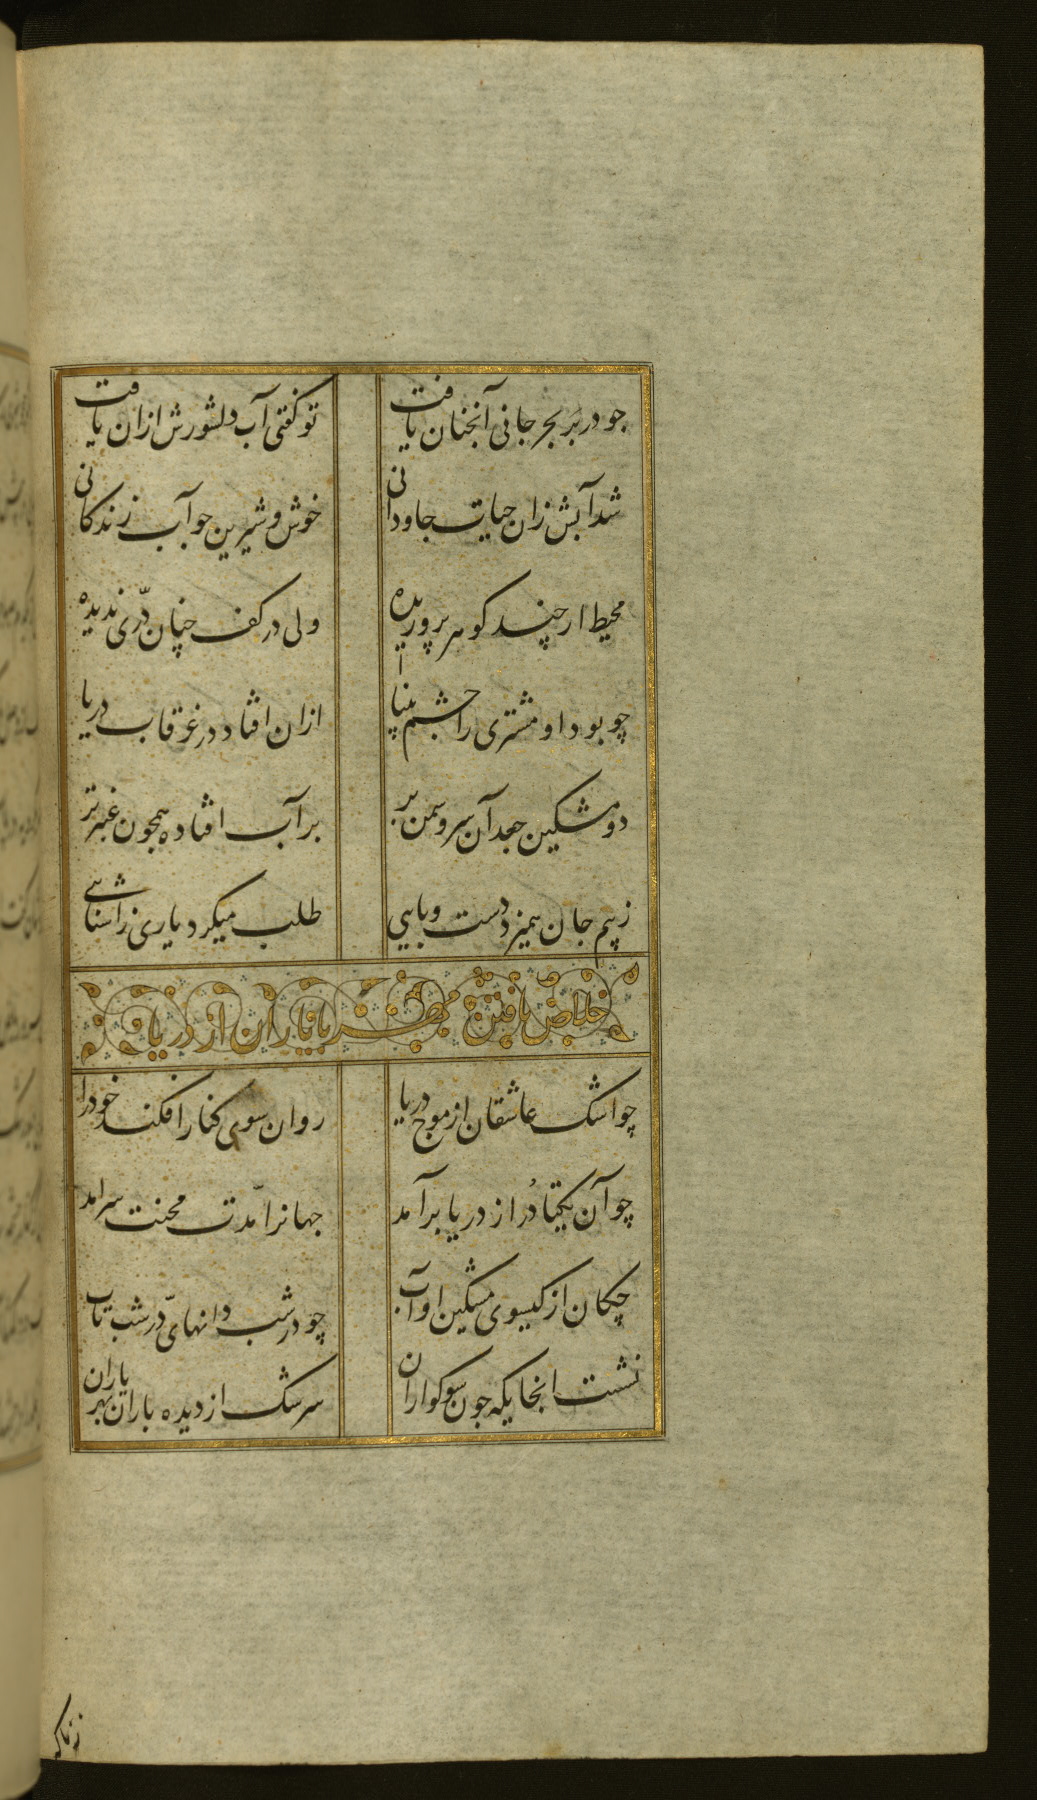 چو در بر بحر جانی آنچنان یافت
تو گفتی آب دلشورش ازان یافت
شد آبش زان حیات جاودانی
خوش و شیرین چو آب زندگانی
محیط ار چند گوهر پروریده
ولی در کف چنان درّی ندیده
چو بود او مشتری را چشم بینا
ازان افتاد در غرقاب دریا
دو مشکین جعد آن سرو سمن بر
بر آب افتاده همچون عنبر تر
ز بیم جان همیزد دست و پایی
طلب میکرد یاری ز آشنایی
خلاص یافتن مهر با یاران از دریا
چو اشک عاشقان از موج دریا
روان سوی کنار افکند خود را
چو آن یکتا دُر از دریا برآمد
جهانرا مدّت محنت سرامد
چکان از گیسوی مشکین او آب
چو در شب دانهای درّ شب تاب
نشست انجایکه چون سوکواران
سرشک از دیده باران بهر یاران